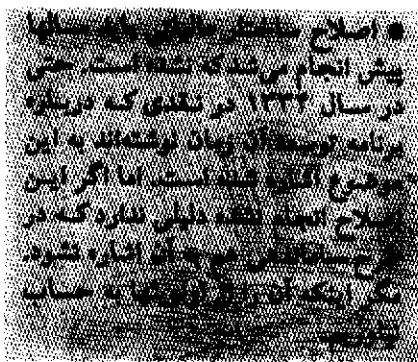 ● اصلاح ساختار مالیاتی باید سالها
پیش انجام می‌شد که نشده است. حتی
در سال ۱۳۳۴ در نقدی که درباره
برنامه توسعه آن زمان نوشته‌اند به این
موضوع اشاره شده است. اما اگر این
اصلاح انجام نشده دلیلی ندارد که در
به آن اشاره نشود.
مگر اینکه آن را از به حساب